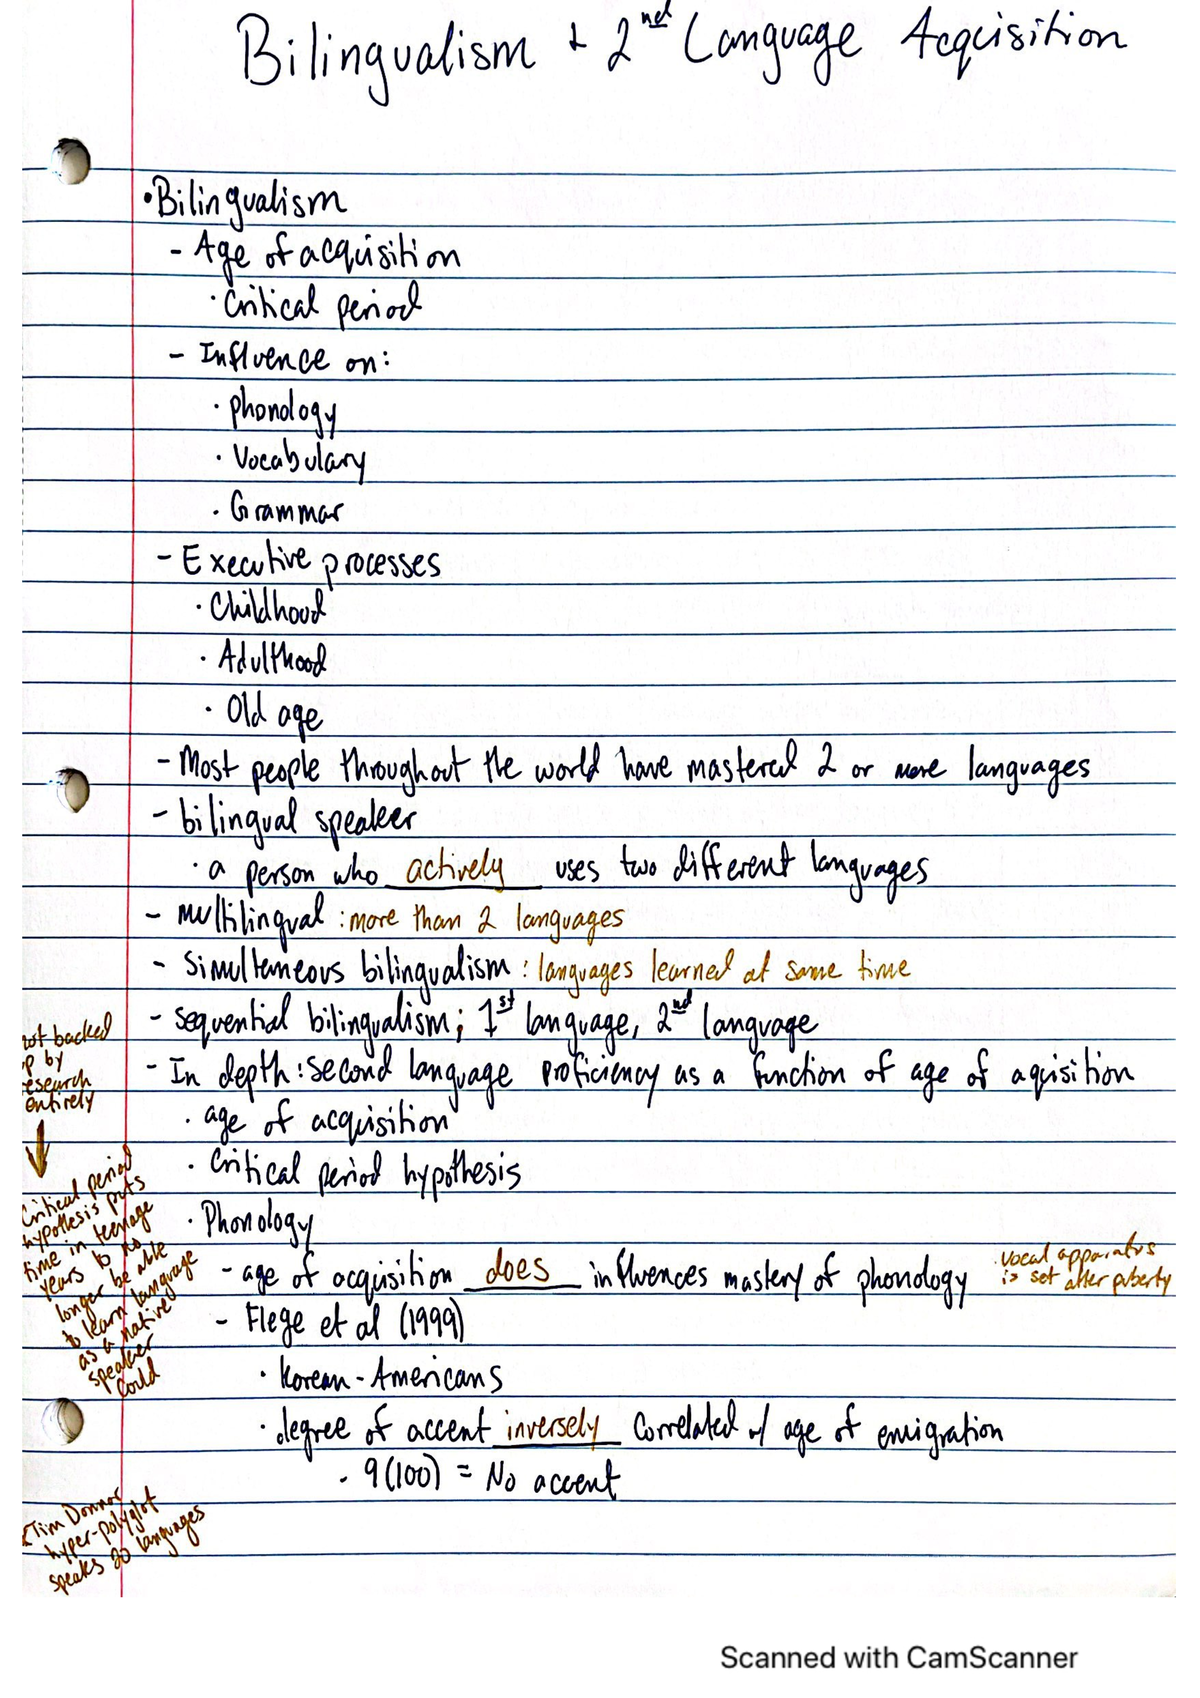 Bilingualism + 2nd Language Acquisition
• Bilingualism
- Age of acquisition
· Critical period
- Influence on:
· phonology
· Vocabulary
· Grammar
- Executive processes
· Childhood
· Adulthood
· Old age
- Most people throughout the world have mastered 2 or more languages
- bilingual speaker
· a person who actively uses two different languages
- multilingual : more than 2 languages
- Simultaneous bilingualism : languages learned at same time
- sequential bilingualism; 1st language, 2nd language
- In depth : second language proficiency as a function of age of aquisition
· age of acquisition
· Critical period hypothesis
· Phonology
- age of acquisition does influences mastery of phonology
· vocal apparatus
is set after puberty
- Flege et al (1999)
· Korean-Americans
· degree of accent inversely correlated w/ age of emigration
· 9(100) = No accent
backed
by
entirely
Critical period
hypothesis puts
time in teenage
years to no
longer be able
to learn language
as a native
speaker
could
Tim Donner
hyper-polyglot
speaks 20 languages
Scanned with CamScanner